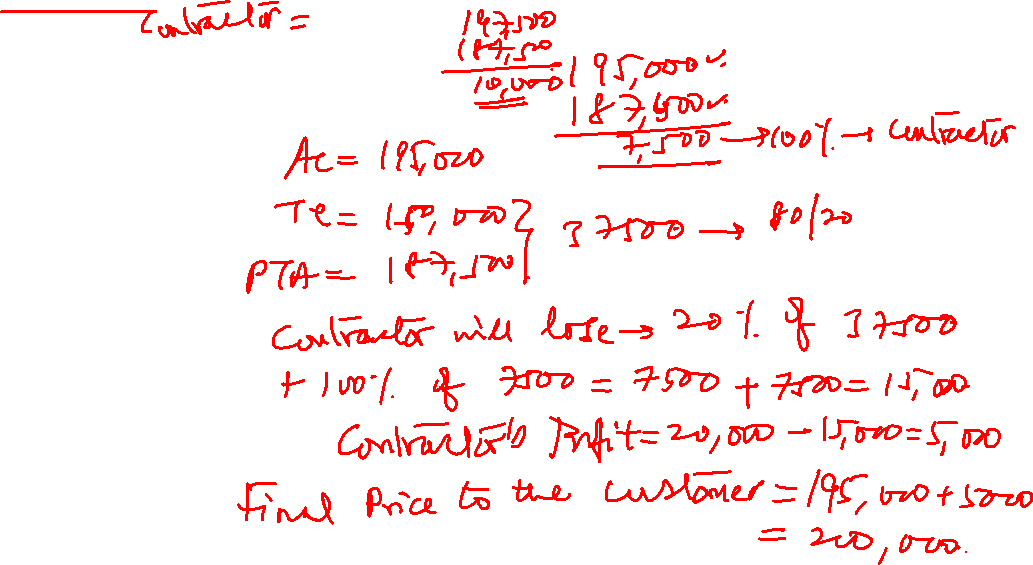 Contractor =
197,500
187,500
10,000
195,000 ✓
187,500 ✓
7,500 → 100% → Contractor
AC = 195,000
TC = 150,000 } 37500 → 80/20
PTA = 187,500
Contractor will lose → 20% of 37500
+ 100% of 7500 = 7500 + 7500 = 15,000
Contractor's Profit = 20,000 - 15,000 = 5,000
Final Price to the customer = 195,000 + 5000
= 200,000.